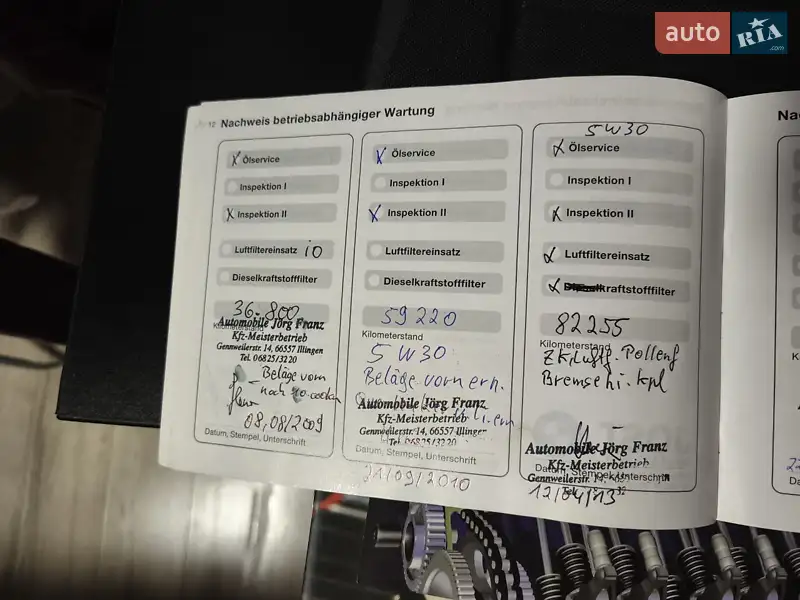 auto RIA .com
12 Nachweis betriebsabhängiger Wartung
X Ölservice
Inspektion I
X Inspektion II
Luftfiltereinsatz iO
Dieselkraftstofffilter
36.800
Kilometerstand
Automobile Jörg Franz
Kfz-Meisterbetrieb
Gennweilerstr. 14, 66557 Illingen
Tel. 06825/3220
Beläge vorn
noch
08,08/2009
Datum, Stempel, Unterschrift
X Ölservice
Inspektion I
X Inspektion II
Luftfiltereinsatz
Dieselkraftstofffilter
59220
Kilometerstand
5W30
Beläge vorn ern.
Automobile Jörg Franz
Kfz-Meisterbetrieb
Gennweilerstr. 14, 66557 Illingen
Tel. 06825/3220
Datum, Stempel, Unterschrift
21/09/2010
5W30
X Ölservice
Inspektion I
X Inspektion II
X Luftfiltereinsatz
X Dieselkraftstofffilter
82255
Kilometerstand
ZK, Luftf. Pollenf
Bremse hi. kpl
Automobile Jörg Franz
Kfz-Meisterbetrieb
Datum, Stempel, Unterschrift
Gennweilerstr. 14,
12/04/13
Na